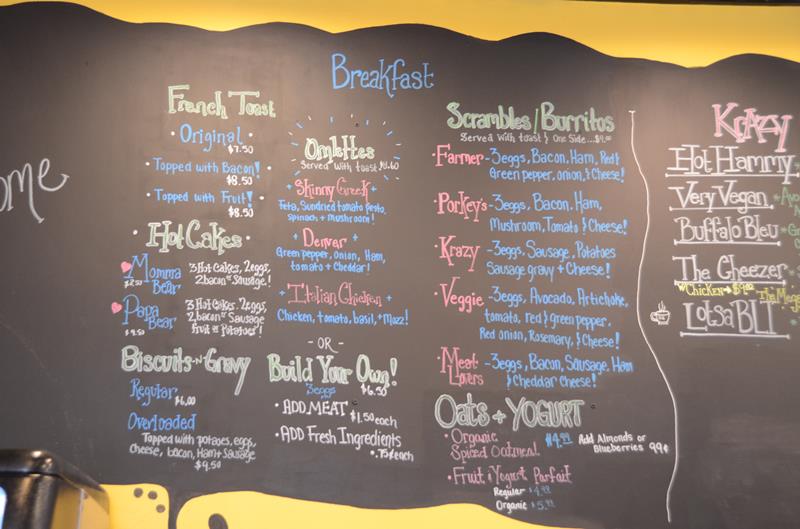 ome
Breakfast
French Toast
• Original •
$7.50
• Topped with Bacon! •
$8.50
• Topped with Fruit! •
$8.50
• Hot Cakes •
Momma Bear
3 Hot Cakes, 2 eggs,
2 bacon or Sausage!
Papa Bear
$9.50
3 Hot Cakes, 2 eggs
2 bacon or Sausage
fruit or Potatoes!
Biscuits-N-Gravy
Regular
$6.00
Overloaded
Topped with potatoes, eggs,
cheese, bacon, Ham + Sausage
$9.50
Omlettes
Served with toast
+ Skinny Greek +
Feta, Sundried tomato pesto,
spinach + mushroom!
+ Denver +
Green pepper, onion, Ham,
tomato + Cheddar!
+ Italian Chicken +
Chicken, tomato, basil, + Mozz!
- OR -
Build Your Own!
3 eggs $6.50
• ADD MEAT $1.50 each
• ADD Fresh Ingredients
.75¢ each
Scrambles/Burritos
Served with toast & One Side....$9.00
• Farmer - 3 eggs, Bacon, Ham, Red &
Green pepper, onion, & Cheese!
• Porkey's - 3 eggs, Bacon, Ham,
Mushroom, Tomato & Cheese!
• Krazy - 3 eggs, Sausage, Potatoes
Sausage gravy + Cheese!
• Veggie - 3 eggs, Avocado, Artichoke,
tomato, red & green pepper,
Red onion, Rosemary, & Cheese!
• Meat Lovers - 3 eggs, Bacon, Sausage, Ham
& Cheddar Cheese!
Oats + YOGURT
• Organic
Spiced Oatmeal
$4.99
Add Almonds or
Blueberries 99¢
• Fruit & Yogurt Parfait
Regular $4.99
Organic $5.99
Krazy
Hot Hammy
Very Vegan
Buffalo Bleu
The Cheezer
w/Chicken → $9.00
The Mega
Lotsa BLT